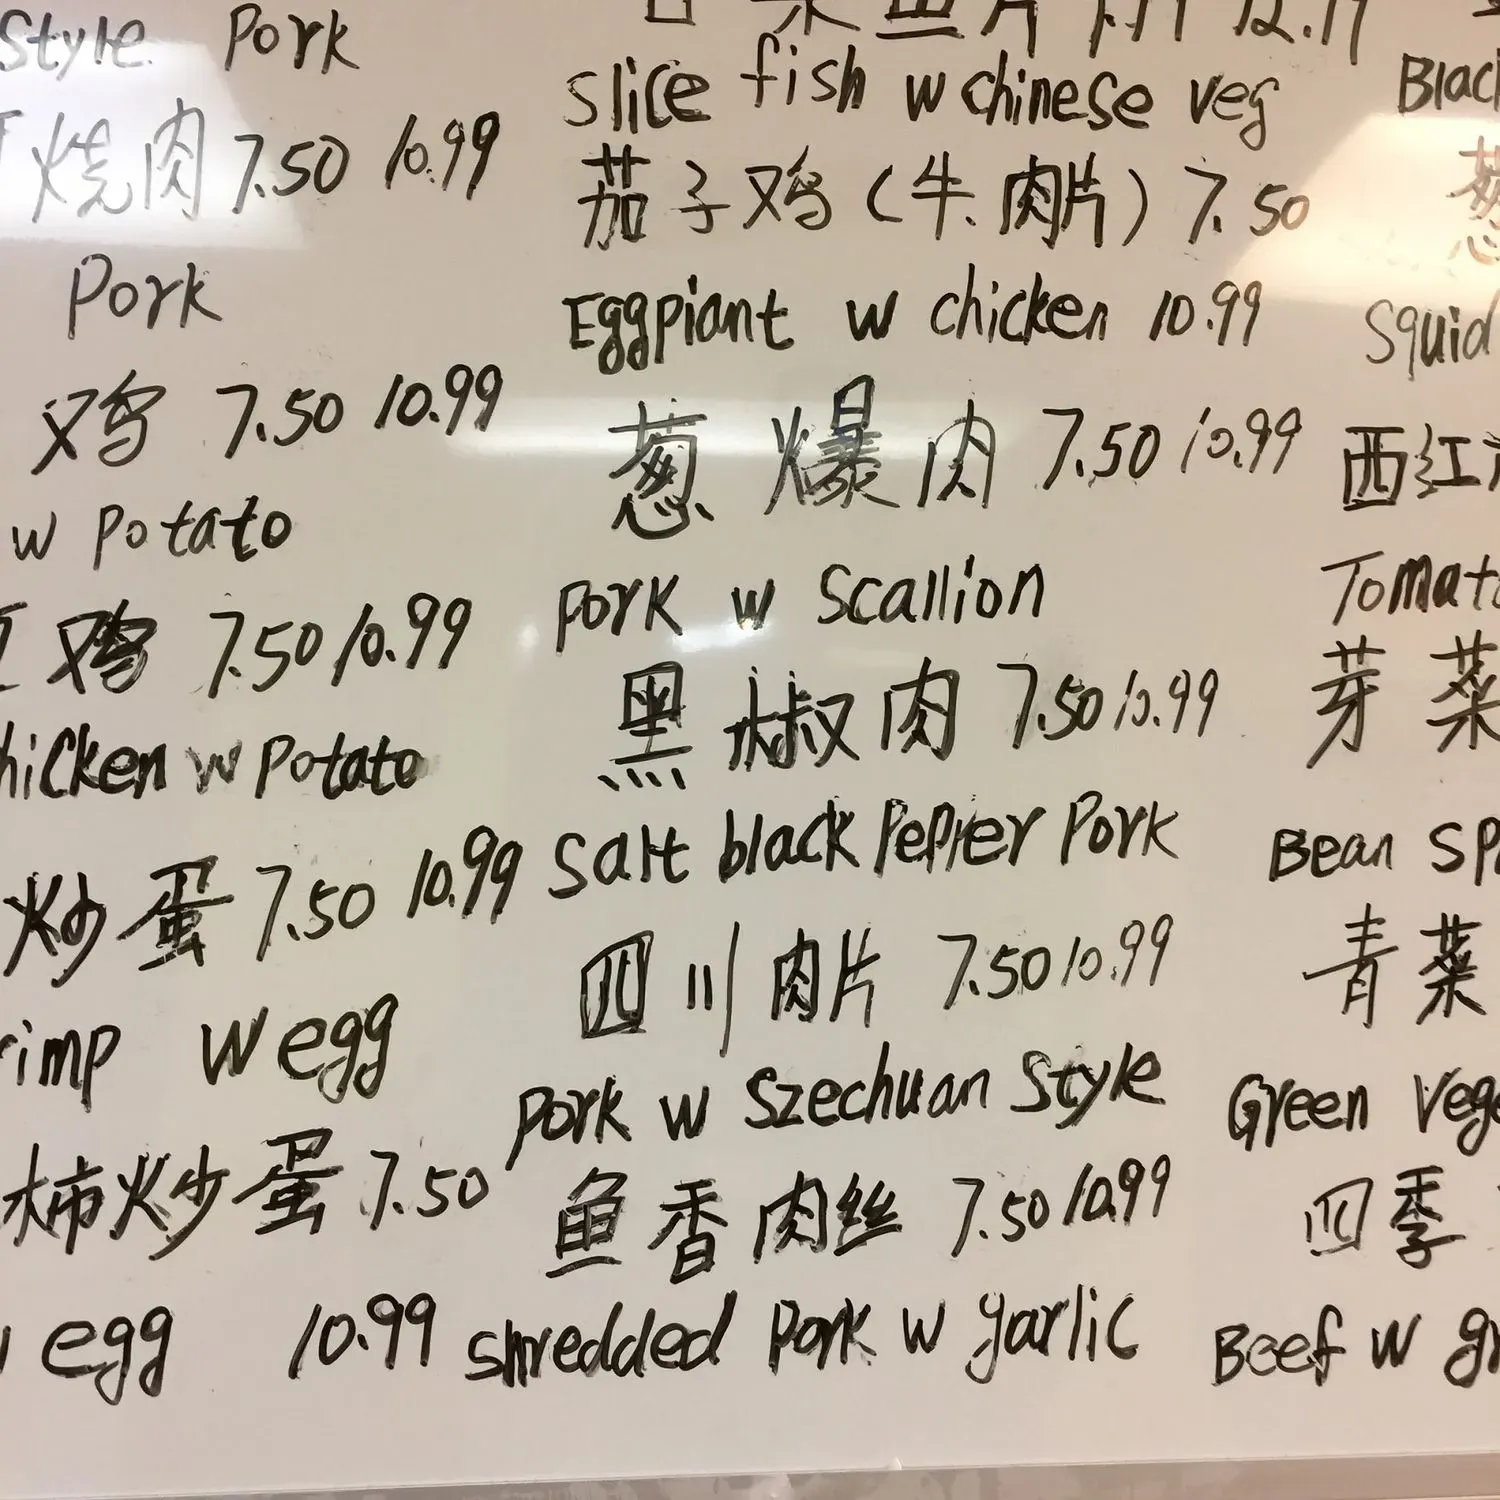 Style Pork
烧肉 7.50 10.99
Pork
鸡 7.50 10.99
w potato
鸡 7.50 10.99
hicken w potato
炒蛋 7.50 10.99
rimp w egg
柿炒蛋 7.50
egg 10.99
菜鱼片
slice fish w chinese veg
茄子鸡(牛.肉片) 7.50
Eggpiant w chicken 10.99
葱爆肉 7.50 10.99
pork w scallion
黑椒肉 7.50 10.99
Salt black Pepper Pork
四川肉片 7.50 10.99
pork w Szechuan Style
鱼香肉丝 7.50 10.99
shredded pork w garlic
Black
葱
Squid
西红
Tomato
芽菜
Bean sp
青菜
Green vege
四季
Beef w gr